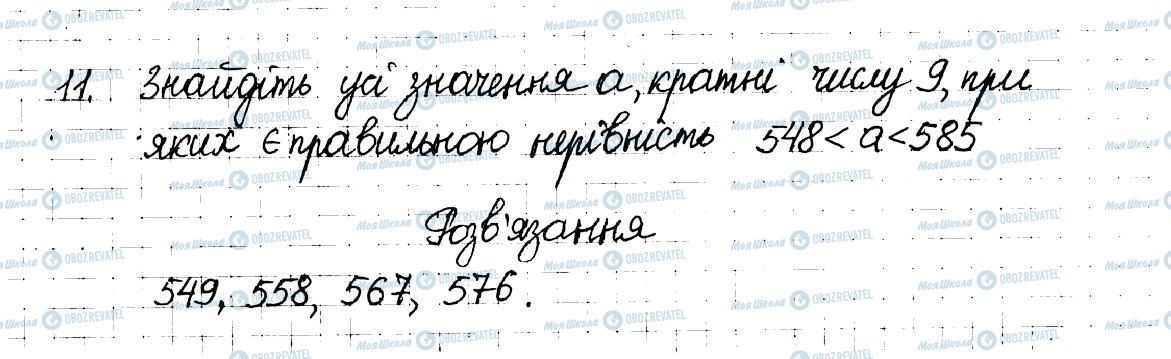 11. Знайдіть усі значення а, кратні числу 9, при
яких є правильною нерівність 548 < а < 585
Розв'язання
549, 558, 567, 576.